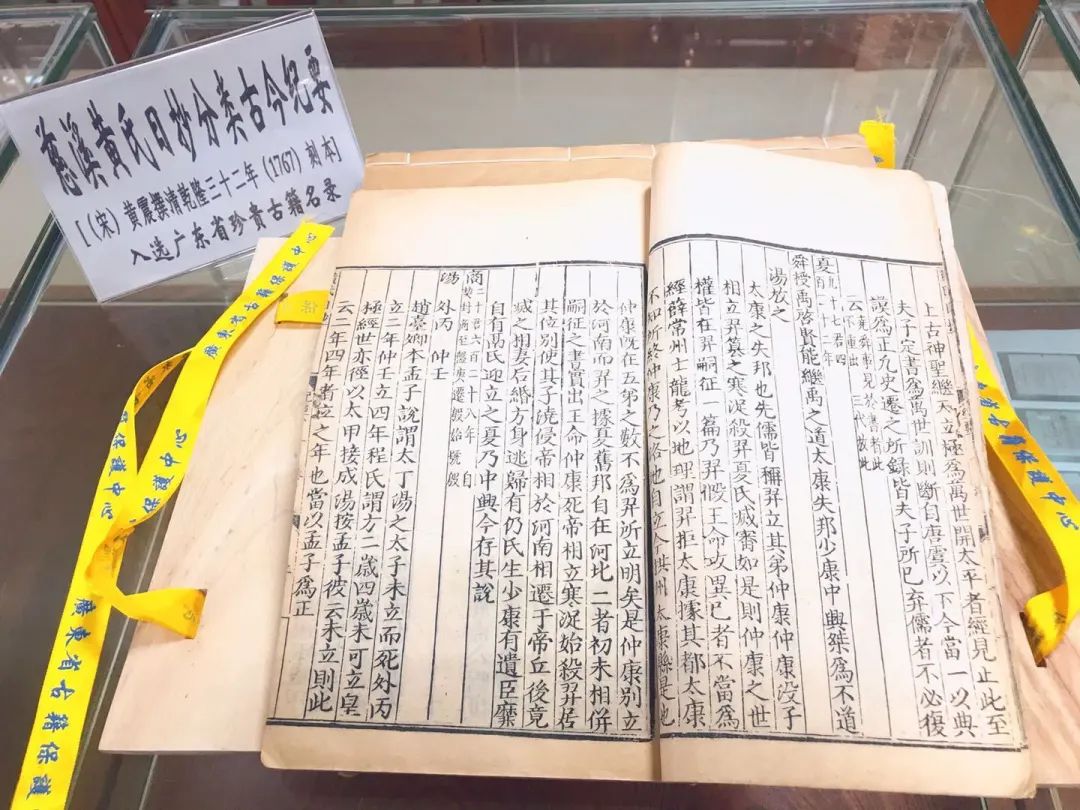 慈溪黄氏日抄分类古今纪要
[(宋) 黄震撰清乾隆三十二年(1767) 刻本]
入选广东省珍贵古籍名录
上古神聖繼天立極為萬世開太平者經見止此至
夫子定書為萬世訓則斷自唐虞以下今當一以典
謨為正凡史遷之所錄皆夫子所已棄儒者不必復
云堯舜事見於書者此不重出三代放此
夏十七君四百二年
舜授禹啓賢能繼禹之道太康失邦少康中興桀為不道
湯放之
太康之失邦也先儒皆稱羿立其弟仲康仲康没子
相立羿簒之寒浞殺羿夏氏烕如是則仲康之世
權皆在羿嗣征一篇乃羿假王命攻異已者不當為
經薛常州士龍考以地理謂羿拒太康據其都太康
不知所終仲康乃之洛也自立今拱州太康縣是也
仲康旣在五弟之數不為羿所立明矣是仲康別立
於河南而羿之據夏舊邦自在河北二者初未相併
嗣征之書實出王命仲康死帝相立寒浞始殺羿居
其位別使其子澆侵帝相於河南相遷于帝丘後竟
烕之相妻后緡方身逃歸有仍氏生少康有遺臣靡
自有鬲氏迎立之夏乃中興今存其說
商二十君六百二十八年自契封商至盤庚遷殷始號殷
湯 外丙 仲壬
趙臺卿本孟子說謂太丁湯之太子未立而死外丙
立二年仲壬立四年程氏謂方二歲四歲未可立皇
極經世亦徑以太甲接成湯按孟子彼云未立則此
云二年四年者立之年也當以孟子為正
廣東省古籍保護中心
保護中心
廣東省古籍保護
古籍保護中心